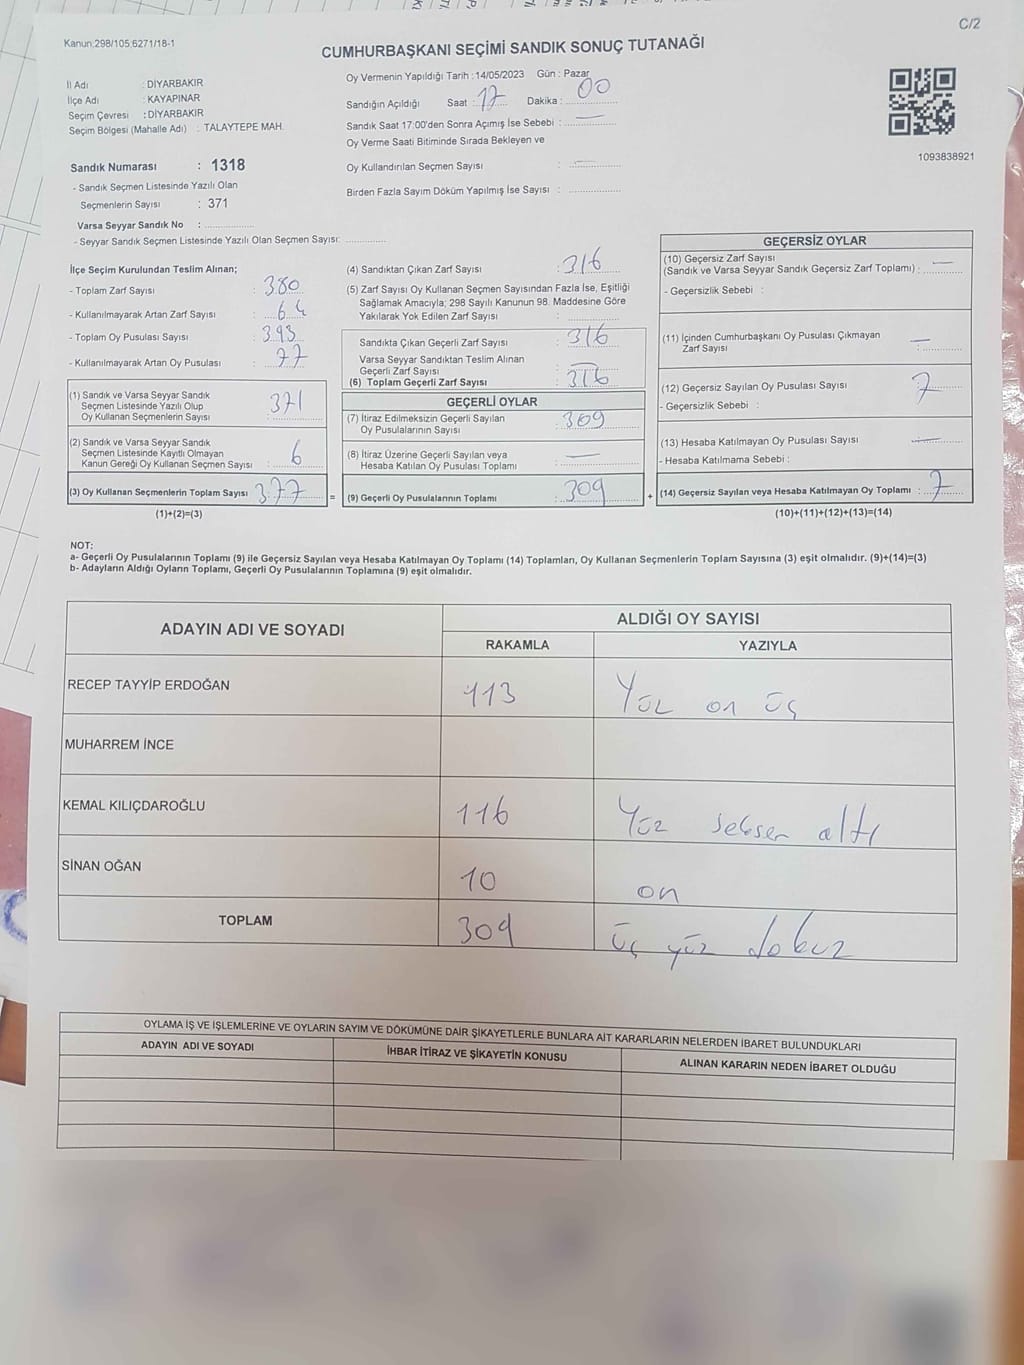 C/2
Kanun:298/105;6271/18-1
CUMHURBAŞKANI SEÇİMİ SANDIK SONUÇ TUTANAĞI
İl Adı : DİYARBAKIR
İlçe Adı : KAYAPINAR
Seçim Çevresi : DİYARBAKIR
Seçim Bölgesi (Mahalle Adı) : TALAYTEPE MAH.
Oy Vermenin Yapıldığı Tarih : 14/05/2023 Gün : Pazar
Sandığın Açıldığı Saat : 17 Dakika : 00
Sandık Saat 17:00'den Sonra Açımış İse Sebebi : —
Oy Verme Saati Bitiminde Sırada Bekleyen ve
Oy Kullandırılan Seçmen Sayısı : —
Birden Fazla Sayım Döküm Yapılmış İse Sayısı :
1093838921
Sandık Numarası : 1318
- Sandık Seçmen Listesinde Yazılı Olan
Seçmenlerin Sayısı : 371
Varsa Seyyar Sandık No :
- Seyyar Sandık Seçmen Listesinde Yazılı Olan Seçmen Sayısı:
İlçe Seçim Kurulundan Teslim Alınan;
- Toplam Zarf Sayısı : 380
- Kullanılmayarak Artan Zarf Sayısı : 64
- Toplam Oy Pusulası Sayısı : 393
- Kullanılmayarak Artan Oy Pusulası : 77
(1) Sandık ve Varsa Seyyar Sandık
Seçmen Listesinde Yazılı Olup
Oy Kullanan Seçmenlerin Sayısı : 371
(2) Sandık ve Varsa Seyyar Sandık
Seçmen Listesinde Kayıtlı Olmayan
Kanun Gereği Oy Kullanan Seçmen Sayısı : 6
(3) Oy Kullanan Seçmenlerin Toplam Sayısı : 377
(1)+(2)=(3)
=
(4) Sandıktan Çıkan Zarf Sayısı : 316
(5) Zarf Sayısı Oy Kullanan Seçmen Sayısından Fazla İse, Eşitliği
Sağlamak Amacıyla; 298 Sayılı Kanunun 98. Maddesine Göre
Yakılarak Yok Edilen Zarf Sayısı :
Sandıkta Çıkan Geçerli Zarf Sayısı : 316
Varsa Seyyar Sandıktan Teslim Alınan
Geçerli Zarf Sayısı : —
(6) Toplam Geçerli Zarf Sayısı : 316
GEÇERLİ OYLAR
(7) İtiraz Edilmeksizin Geçerli Sayılan
Oy Pusulalarının Sayısı : 309
(8) İtiraz Üzerine Geçerli Sayılan veya
Hesaba Katılan Oy Pusulası Toplamı : —
(9) Geçerli Oy Pusulalarının Toplamı : 309
+
GEÇERSİZ OYLAR
(10) Geçersiz Zarf Sayısı
(Sandık ve Varsa Seyyar Sandık Geçersiz Zarf Toplamı) : —
- Geçersizlik Sebebi :
(11) İçinden Cumhurbaşkanı Oy Pusulası Çıkmayan
Zarf Sayısı : —
(12) Geçersiz Sayılan Oy Pusulası Sayısı : 7
- Geçersizlik Sebebi :
(13) Hesaba Katılmayan Oy Pusulası Sayısı : —
- Hesaba Katılmama Sebebi :
(14) Geçersiz Sayılan veya Hesaba Katılmayan Oy Toplamı : 7
(10)+(11)+(12)+(13)=(14)
NOT:
a- Geçerli Oy Pusulalarının Toplamı (9) ile Geçersiz Sayılan veya Hesaba Katılmayan Oy Toplamı (14) Toplamları, Oy Kullanan Seçmenlerin Toplam Sayısına (3) eşit olmalıdır. (9)+(14)=(3)
b- Adayların Aldığı Oyların Toplamı, Geçerli Oy Pusulalarının Toplamına (9) eşit olmalıdır.
ADAYIN ADI VE SOYADI
ALDIĞI OY SAYISI
RAKAMLA YAZIYLA
RECEP TAYYİP ERDOĞAN 113 Yüz on üç
MUHARREM İNCE
KEMAL KILIÇDAROĞLU 116 Yüz seksen altı
SİNAN OĞAN 10 on
TOPLAM 309 üç yüz dokuz
OYLAMA İŞ VE İŞLEMLERİNE VE OYLARIN SAYIM VE DÖKÜMÜNE DAİR ŞİKAYETLERLE BUNLARA AİT KARARLARIN NELERDEN İBARET BULUNDUKLARI
ADAYIN ADI VE SOYADI İHBAR İTİRAZ VE ŞİKAYETİN KONUSU ALINAN KARARIN NEDEN İBARET OLDUĞU